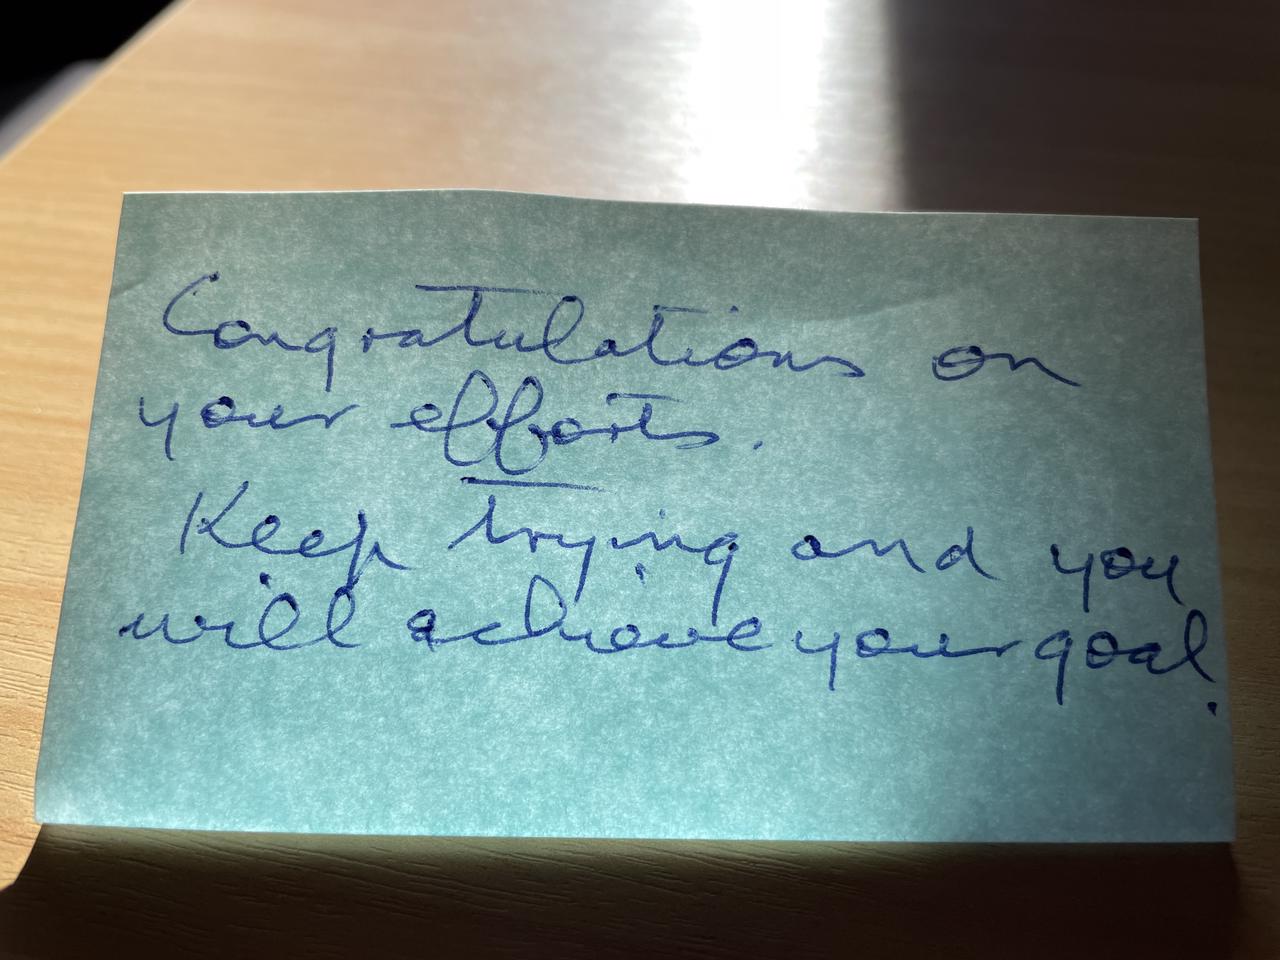 Congratulations on
your efforts.
Keep trying and you
will achieve your goal.